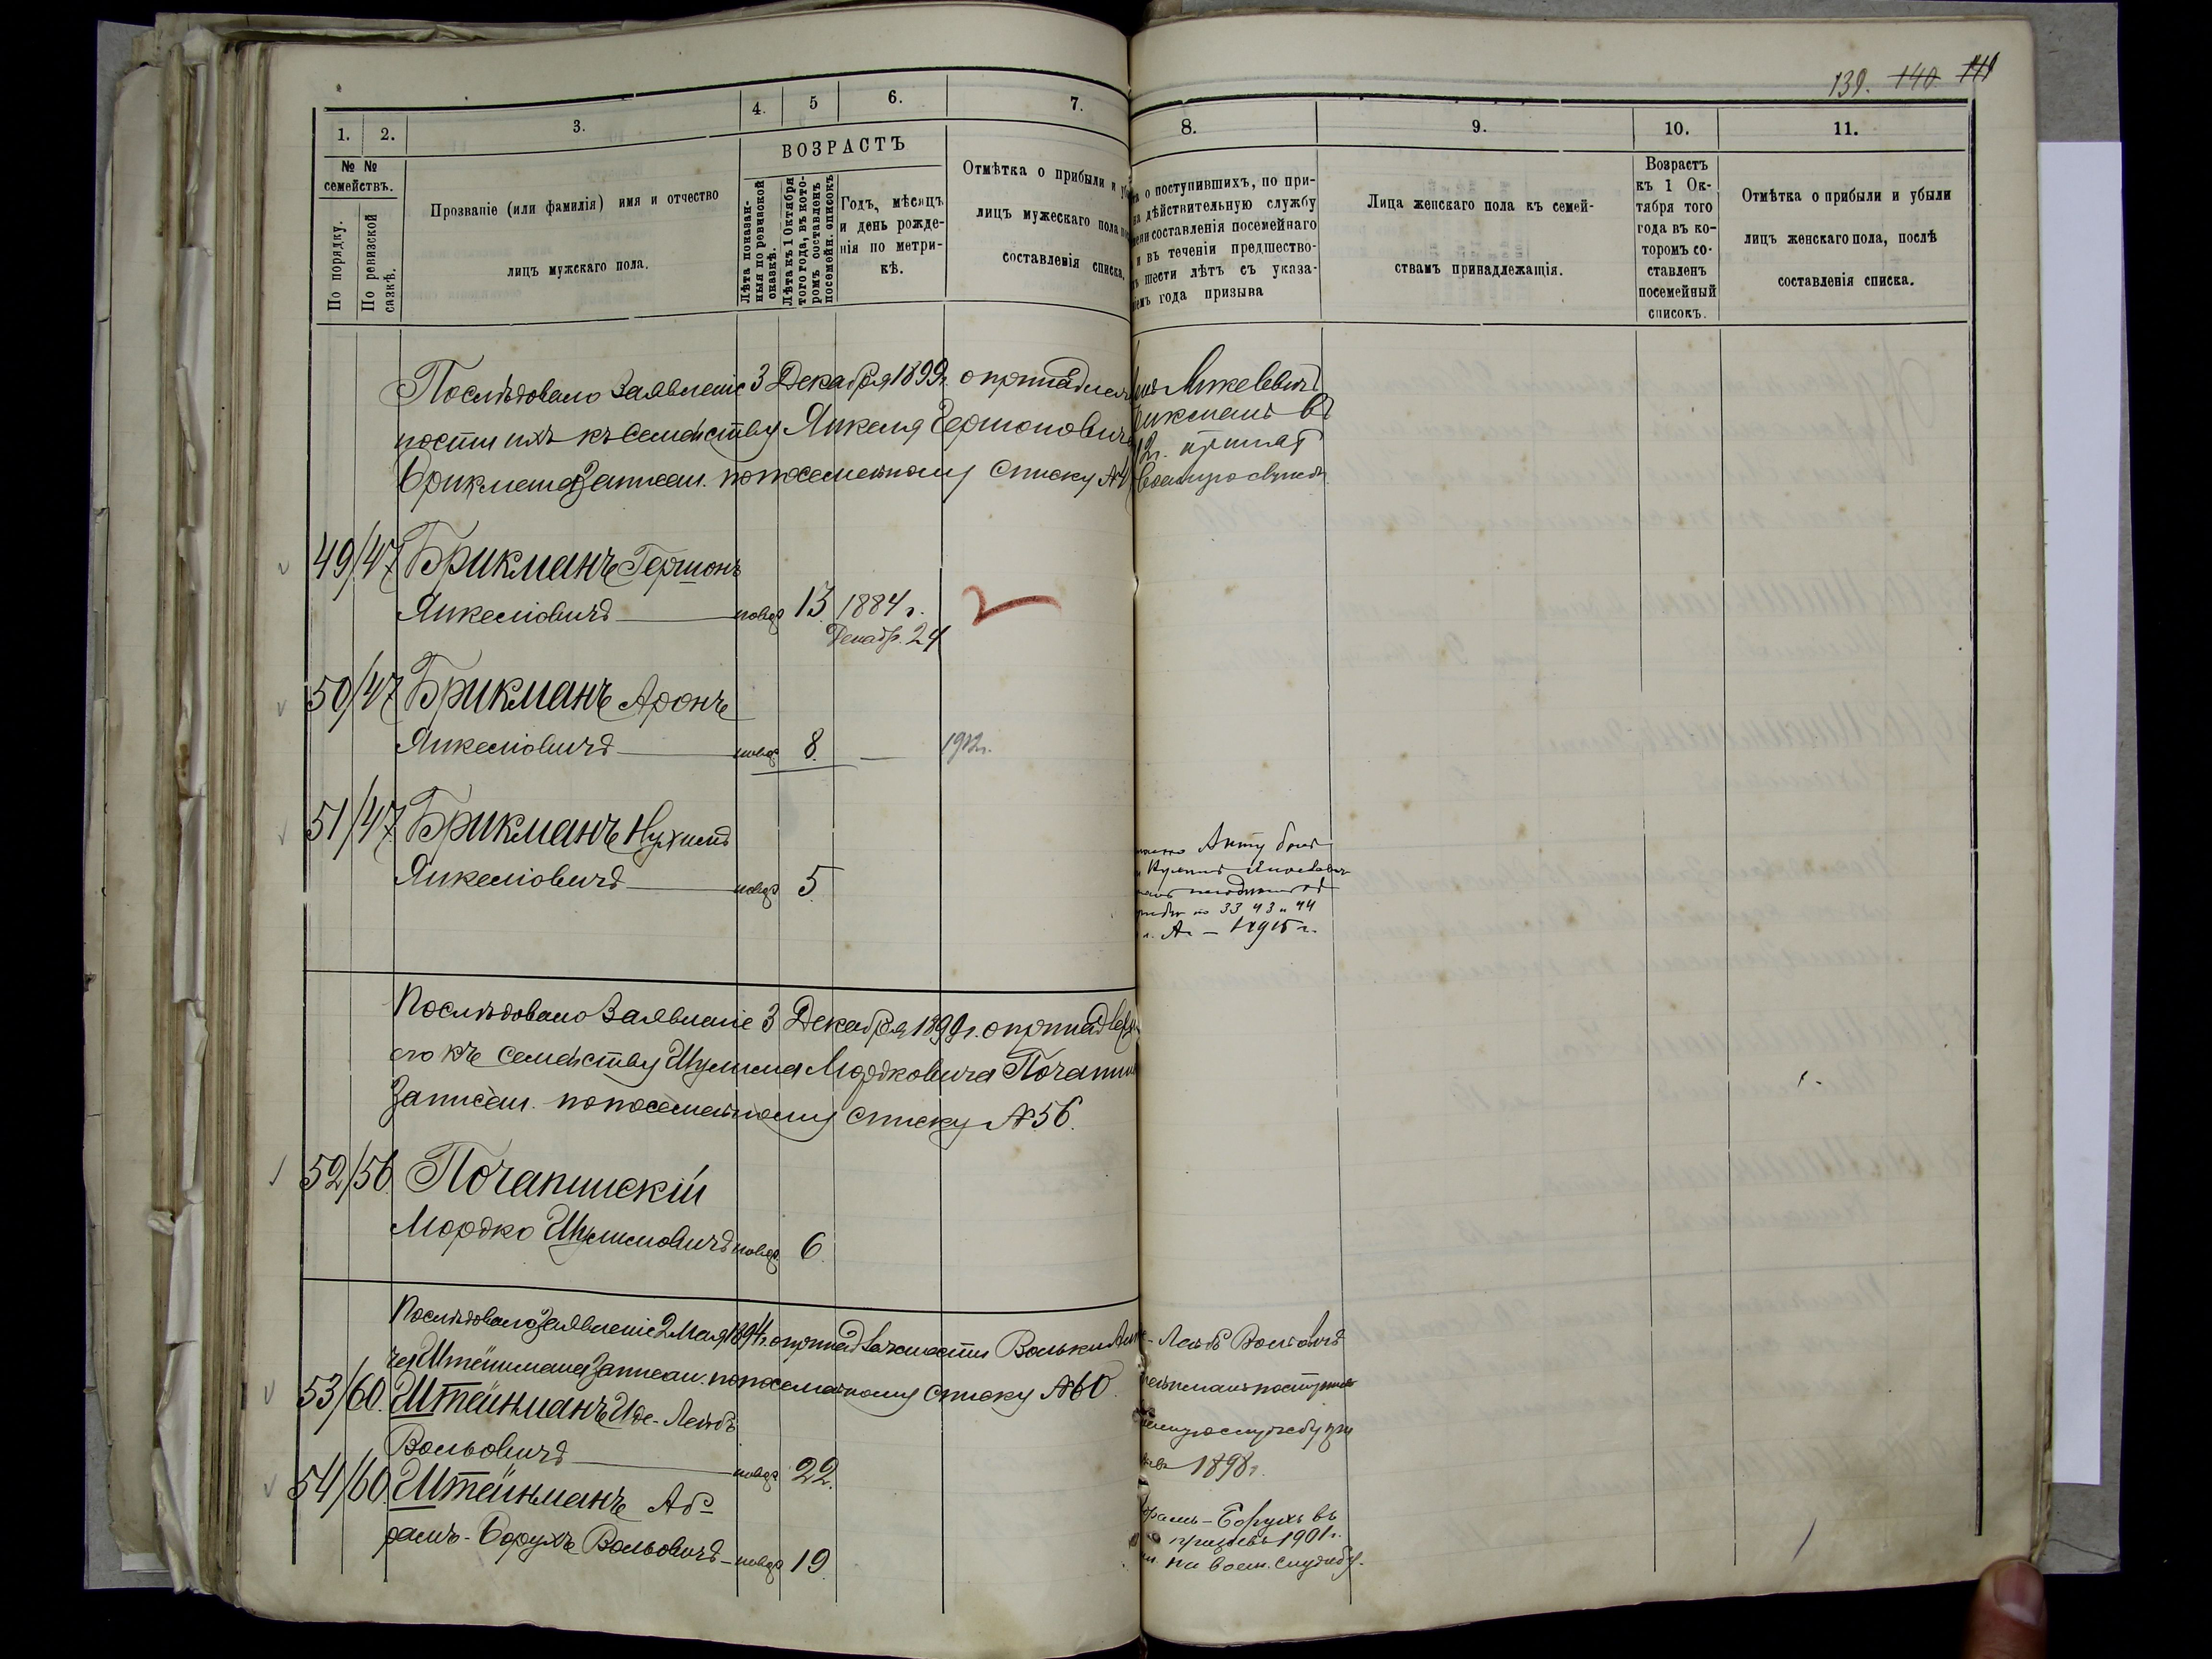 139. 140. 141
1. 2. 3. 4. 5 6. 7. 8. 9. 10. 11.
№ № семействъ.
По порядку.
По ревизской сазкѣ.
Прозваніе (или фамилія) имя и отчество
лицъ мужскаго пола.
ВОЗРАСТЪ
Лѣта показан-
ныя по ревизской
сказкѣ.
Лѣта къ 1 Октября
того года, въ кото-
ромъ составленъ
посемейн. списокъ
Годъ, мѣсяцъ
и день рожде-
нія по метри-
кѣ.
Отмѣтка о прибыли и
лицъ мужескаго пола
составленія списка.
о поступившихъ, по при-
дѣйствительную службу
составленія посемейнаго
и въ теченіи предшество-
шести лѣтъ съ указа-
года призыва
Лица женскаго пола къ семей-
ствамъ принадлежащія.
Возрастъ
къ 1 Ок-
тября того
года въ ко-
торомъ со-
ставленъ
посемейный
списокъ.
Отмѣтка о прибыли и убыли
лицъ женскаго пола, послѣ
составленія списка.
Послѣдовало Заявленіе 3 Декабря 1899г. о принадлеж
ности ихъ къ Семейству Янкеля Гершоновича
Брикмана Записан. по посемейному списку №
принят
49/47 Брикманъ Гершонъ
Янкелювичъ новор 13. 1884 г.
Декабр. 24
50/47 Брикманъ Аронъ
Янкелювичъ новор 8. — 1912г.
51/47 Брикманъ Нухимъ
Янкелювичъ новор 5.
Акту
33 43 и 44
1915 г.
Послѣдовало Заявленіе 3 Декабря 1899г. о принадлеж
его къ Семейству Шулима Мордковича
Записан. по посемейному списку № 56.
52/56. Почапинскій
Мордко Шулимовичъ новор 6.
Послѣдовало Заявленіе 2 Мая 1894г. о принадлежности Вольки
Штейнмана Записан. по посемейному списку № 60.
53/60. Штейнманъ Иде-Лейбъ
Вольовичъ новор 22.
Лейбъ Вольовичъ
поступилъ
службу
1898г.
54/60. Штейнманъ Аб-
рамъ-Борухъ Вольовичъ новор 19.
рамъ-Борухъ въ
призывъ 1901г.
на воен. службу.